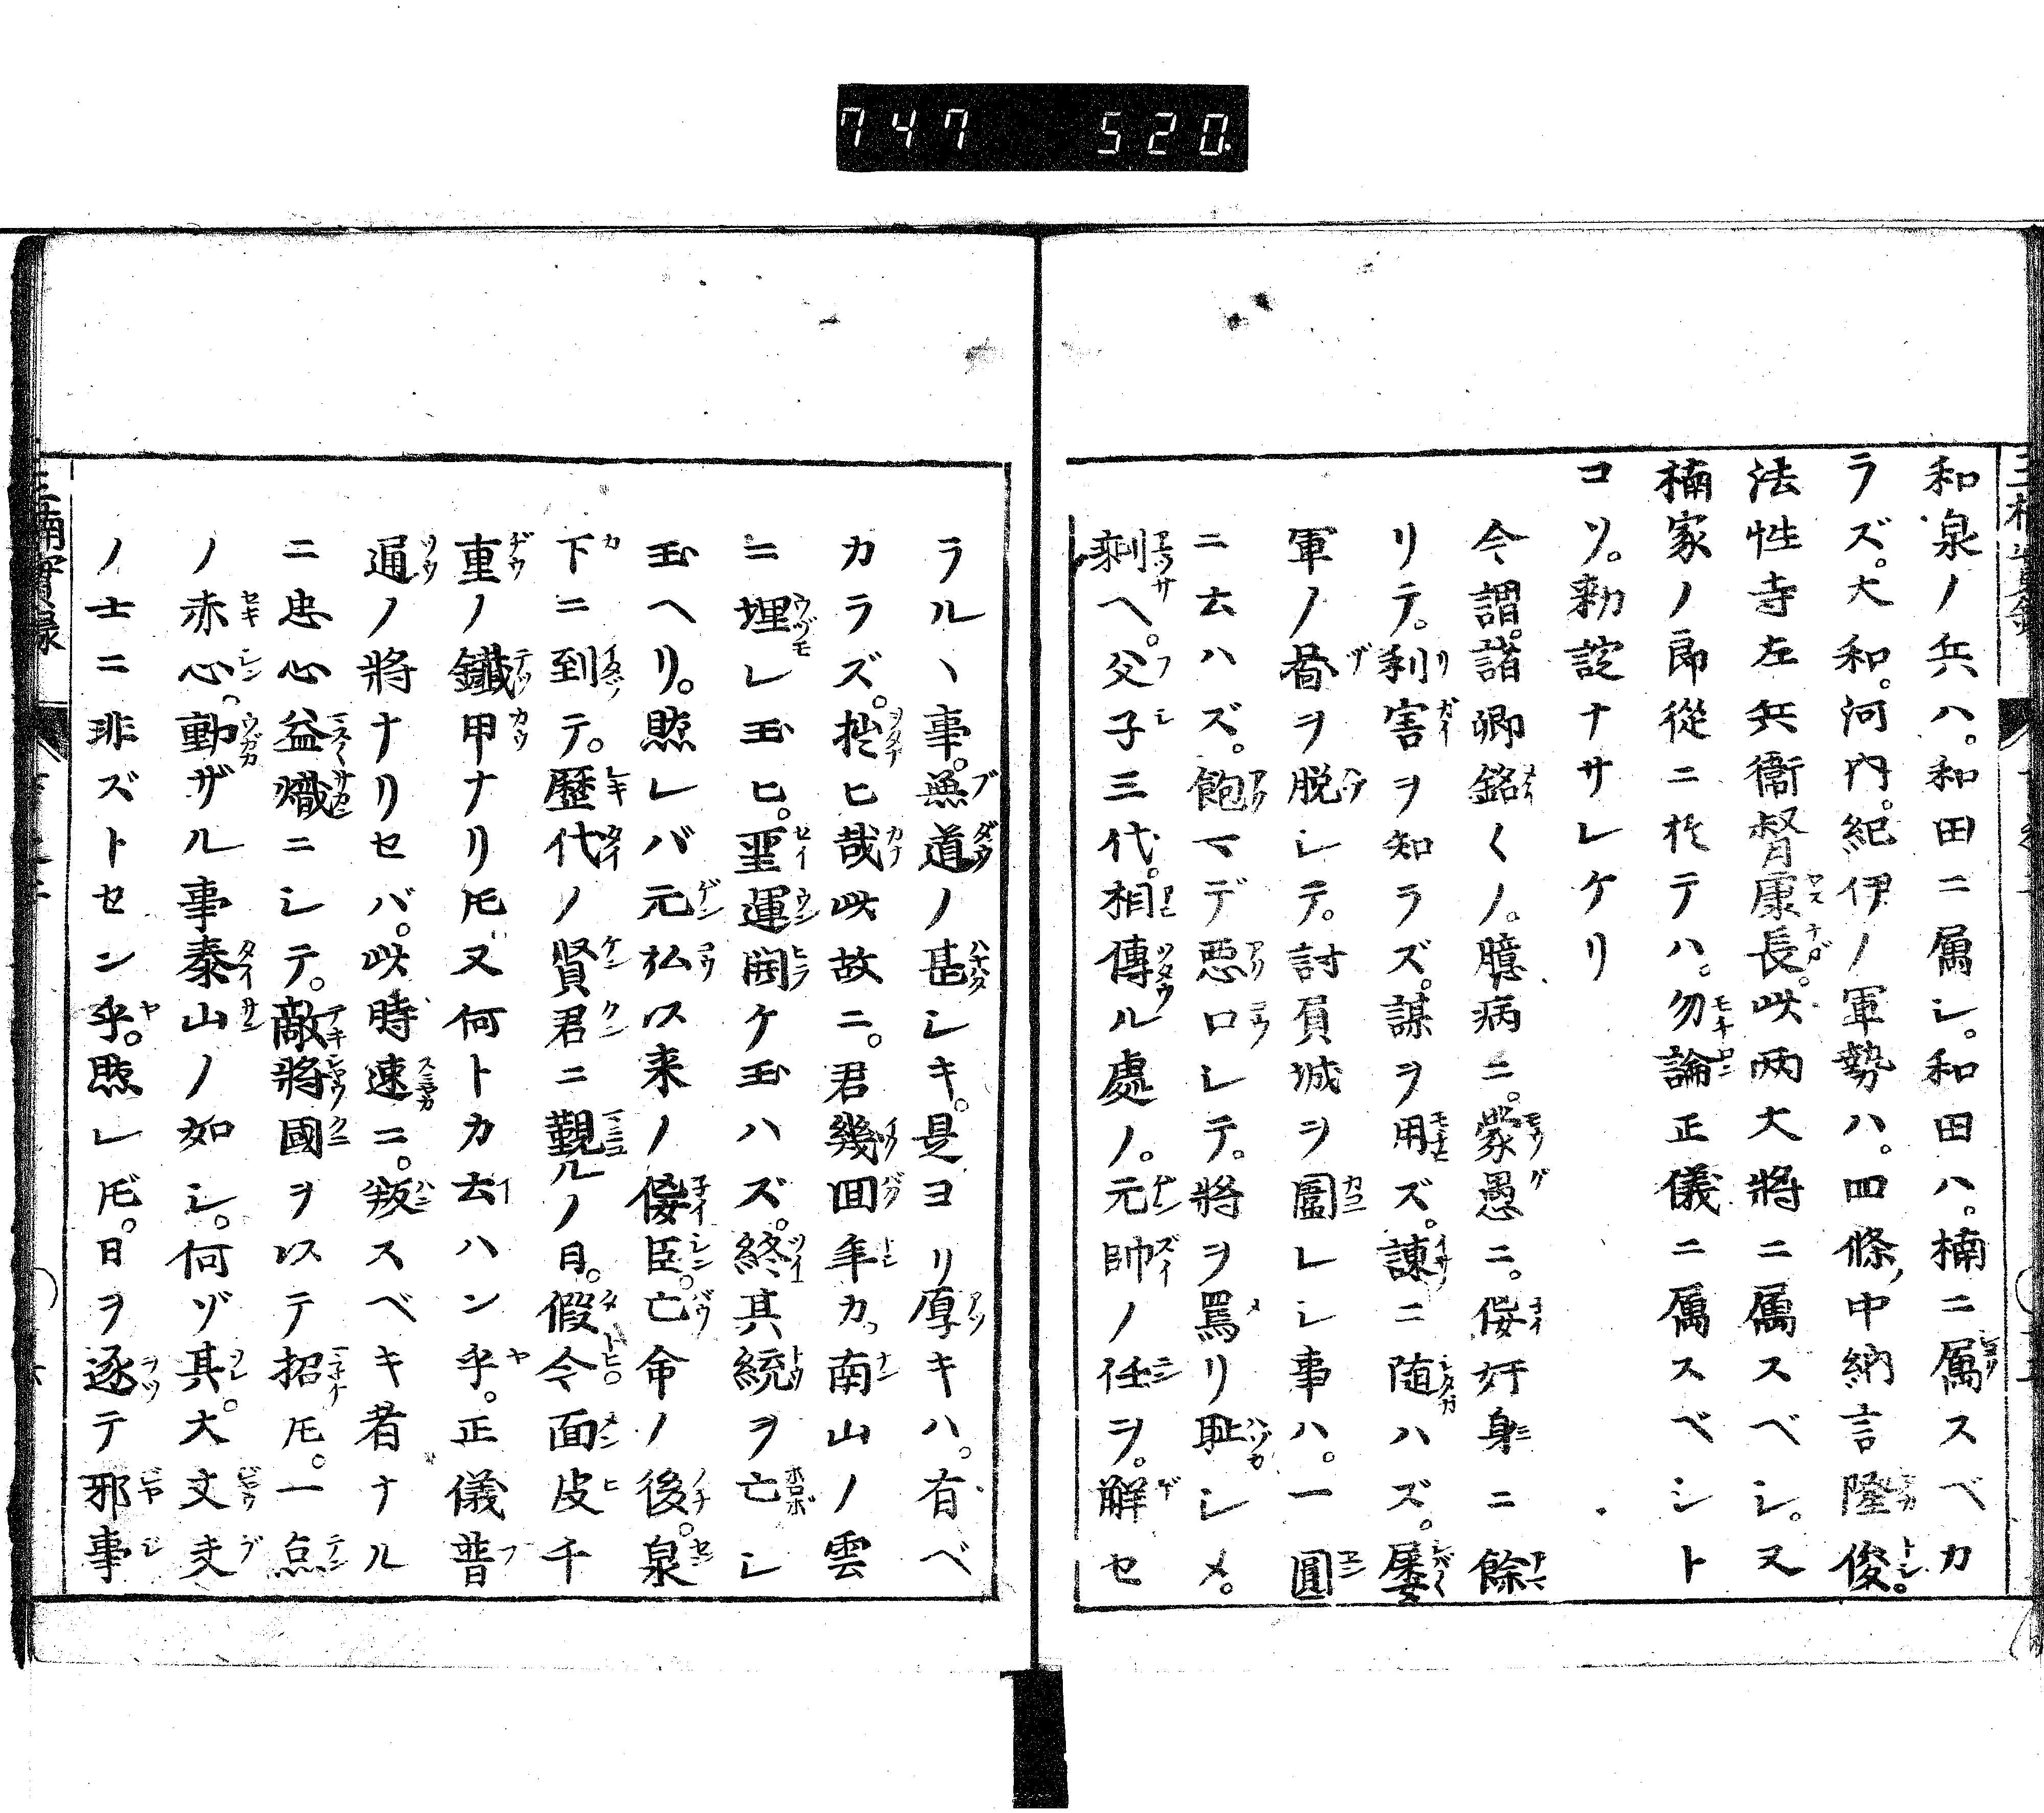 747 520.
和泉ノ兵ハ。和田ニ属シ。和田ハ。楠ニ属スベカ
ラズ。大和。河内。紀伊ノ軍勢ハ。四條ノ中納言隆俊。
法性寺左兵衞督康長。此两大將ニ属スベシ。又
楠家ノ郎從ニ於テハ。勿論正儀ニ属スベシト
コソ。勅諚ナサレケリ
今謂。諸卿銘〱ノ。臆病ニ。蒙愚ニ。佞奸身ニ餘
リテ。利害ヲ知ラズ。謀ヲ用ズ。諌ニ随ハズ。屡
軍ノ圖ヲ脱シテ。討負城ヲ圍レシ事ハ。一圓
ニ云ハズ。飽マデ悪口シテ。將ヲ罵リ耻シメ。
剰ヘ。父子三代。相傳ル處ノ。元帥ノ任ヲ。解セ
ラルヽ事。無道ノ甚シキ。是ヨリ厚キハ。有ベ
カラズ。拙ヒ哉此故ニ。君幾回年カ。南山ノ雲
ニ埋レ玉ヒ。聖運開ケ玉ハズ。終其統ヲ亡シ
玉ヘリ。然レバ元弘以来ノ佞臣。亡命ノ後。泉
下ニ到テ。歷代ノ賢君ニ覲ルノ日。假令面皮千
重ノ鐵甲ナリ𪜈又何トカ云ハン乎。正儀普
通ノ將ナリセバ。此時速ニ。叛スベキ者ナル
ニ忠心益熾ニシテ。敵將國ヲ以テ招𪜈。一点
ノ赤心。動ザル事泰山ノ如シ。何ゾ其。大丈夫
ノ士ニ非ズトセン乎。然レ𪜈。日ヲ逐テ邪事